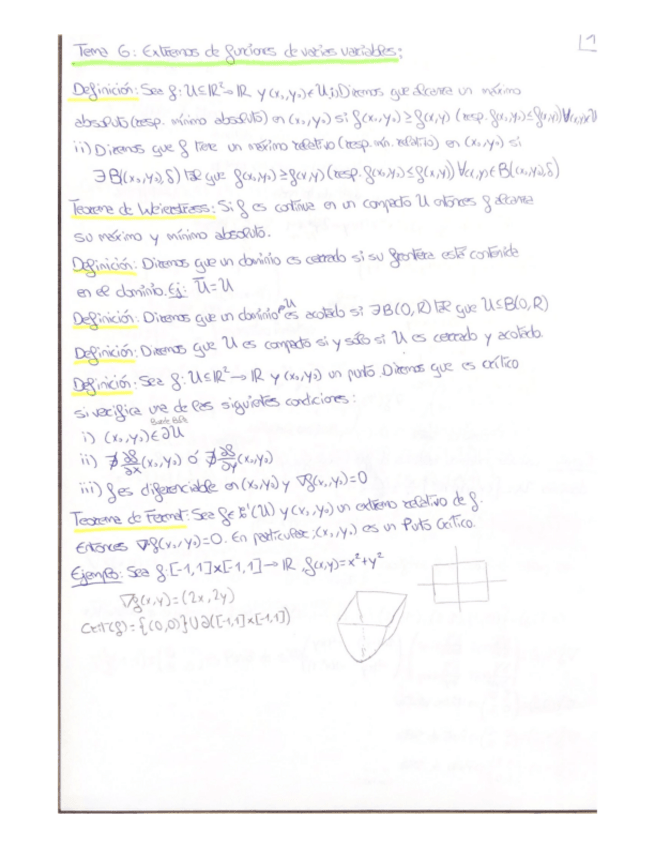 Tema 6: Extremos de funciones de varias variables:
1
Definición: Sea f: U⊆ℝ²→ℝ y (x₀,y₀)∈U, i) Diremos que alcanza un máximo
absoluto (resp. mínimo absoluto) en (x₀,y₀) si f(x₀,y₀) ≥ f(x,y) (resp. f(x₀,y₀) ≤ f(x,y)) ∀(x,y)∈U
ii) Diremos que f tiene un máximo relativo (resp. mín. relativo) en (x₀,y₀) si
∃B((x₀,y₀),δ) tq que f(x₀,y₀) ≥ f(x,y) (resp. f(x₀,y₀) ≤ f(x,y)) ∀(x,y)∈B((x₀,y₀),δ)
Teorema de Weierstrass: Si f es continua en un compacto U entonces f alcanza
su máximo y mínimo absoluto.
Definición: Diremos que un dominio es cerrado si su frontera está contenida
en el dominio. Ej: Ū=U
Definición: Diremos que un dominio U es acotado si ∃B(0,R) tq que U⊆B(0,R)
Definición: Diremos que U es compacto si y sólo si U es cerrado y acotado.
Definición: Sea f: U⊆ℝ²→ℝ y (x₀,y₀) un punto. Diremos que es crítico
si verifica una de las siguientes condiciones:
i) (x₀,y₀)∈∂U
ii) ∄ ∂f/∂x (x₀,y₀) ó ∄ ∂f/∂y (x₀,y₀)
iii) f es diferenciable en (x₀,y₀) y ∇f(x₀,y₀)=0
Teorema de Fermat: Sea f∈C¹(U) y (x₀,y₀) un extremo relativo de f.
Entonces ∇f(x₀,y₀)=0. En particular, (x₀,y₀) es un Punto Crítico.
Ejemplo: Sea f:[-1,1]x[-1,1]→ℝ, f(x,y)=x²+y²
∇f(x,y)=(2x,2y)
Crit(f)={(0,0)}∪∂([-1,1]x[-1,1])